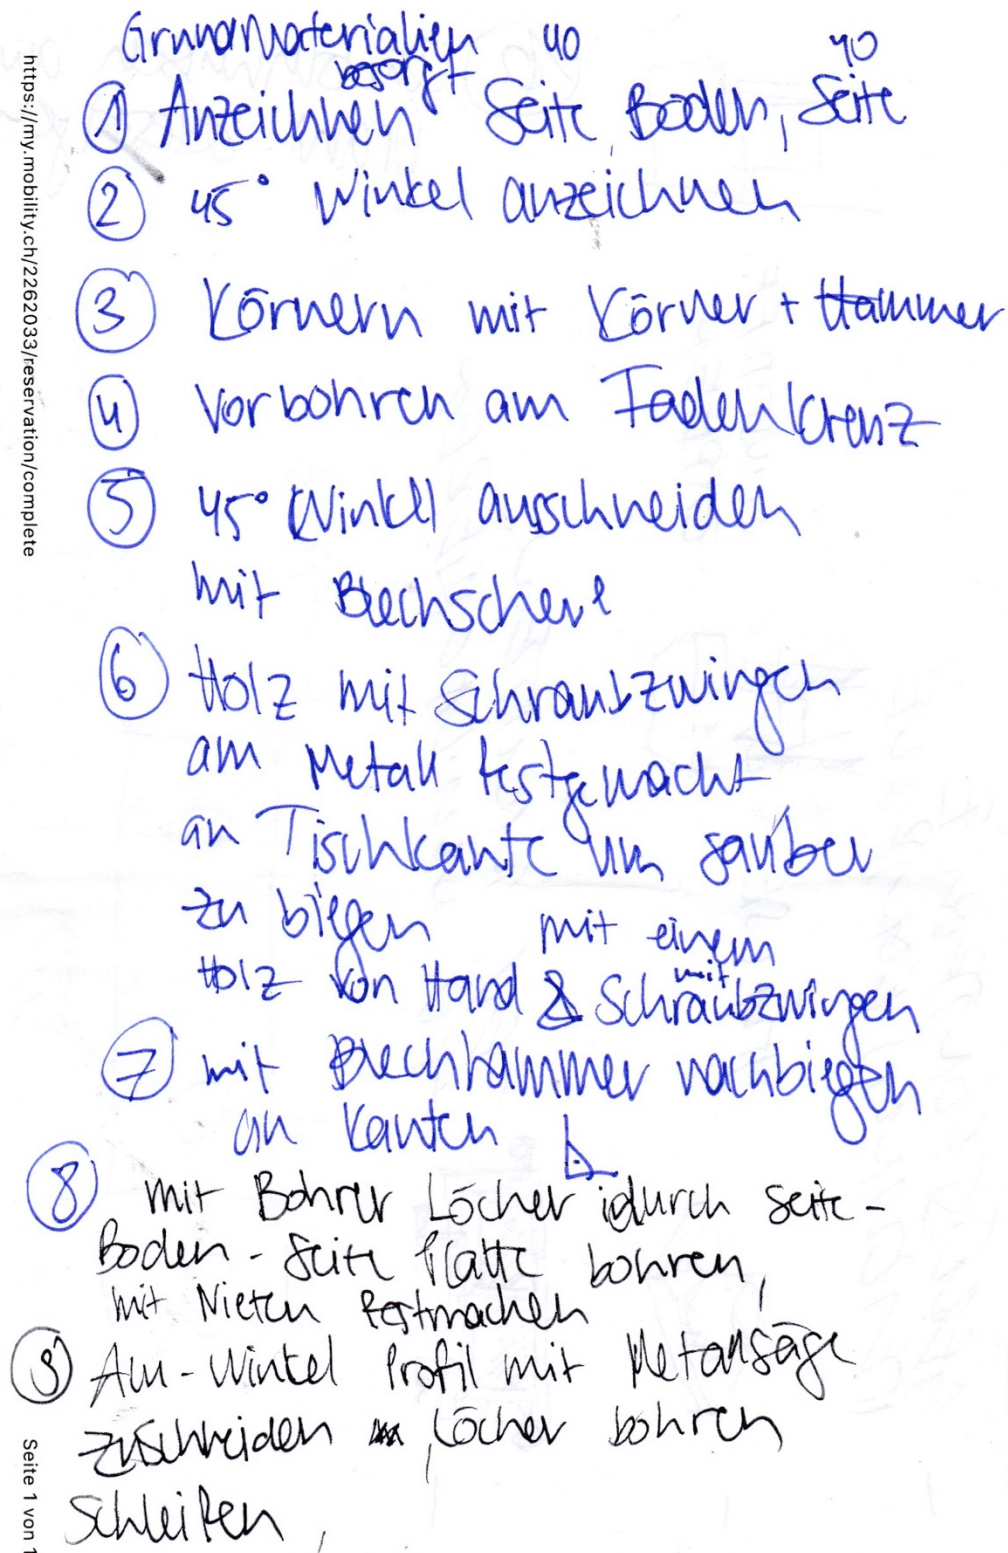 Grundmaterialien 40 40
besorgt
① Anzeichnen Seite Boden, Seite
② 45° Winkel anzeichnen
③ Körnern mit Körner + Hammer
④ Vorbohren am Fadenkreuz
⑤ 45° Winkel ausschneiden
mit Blechschere
⑥ Holz mit Schraubzwingen
am Metall festgemacht
an Tischkante um sauber
zu biegen mit einem
Holz von Hand & mit Schraubzwingen
⑦ mit Blechhammer nachbiegen
an Kanten
⑧ mit Bohrer Löcher durch Seite-
Boden - Seite Platte bohren,
mit Nieten festmachen
⑨ Alu-Winkel Profil mit Metallsäge
zuschneiden, Löcher bohren
schleifen,
https://my.mobility.ch/2262033/reservation/complete
Seite 1 von 1